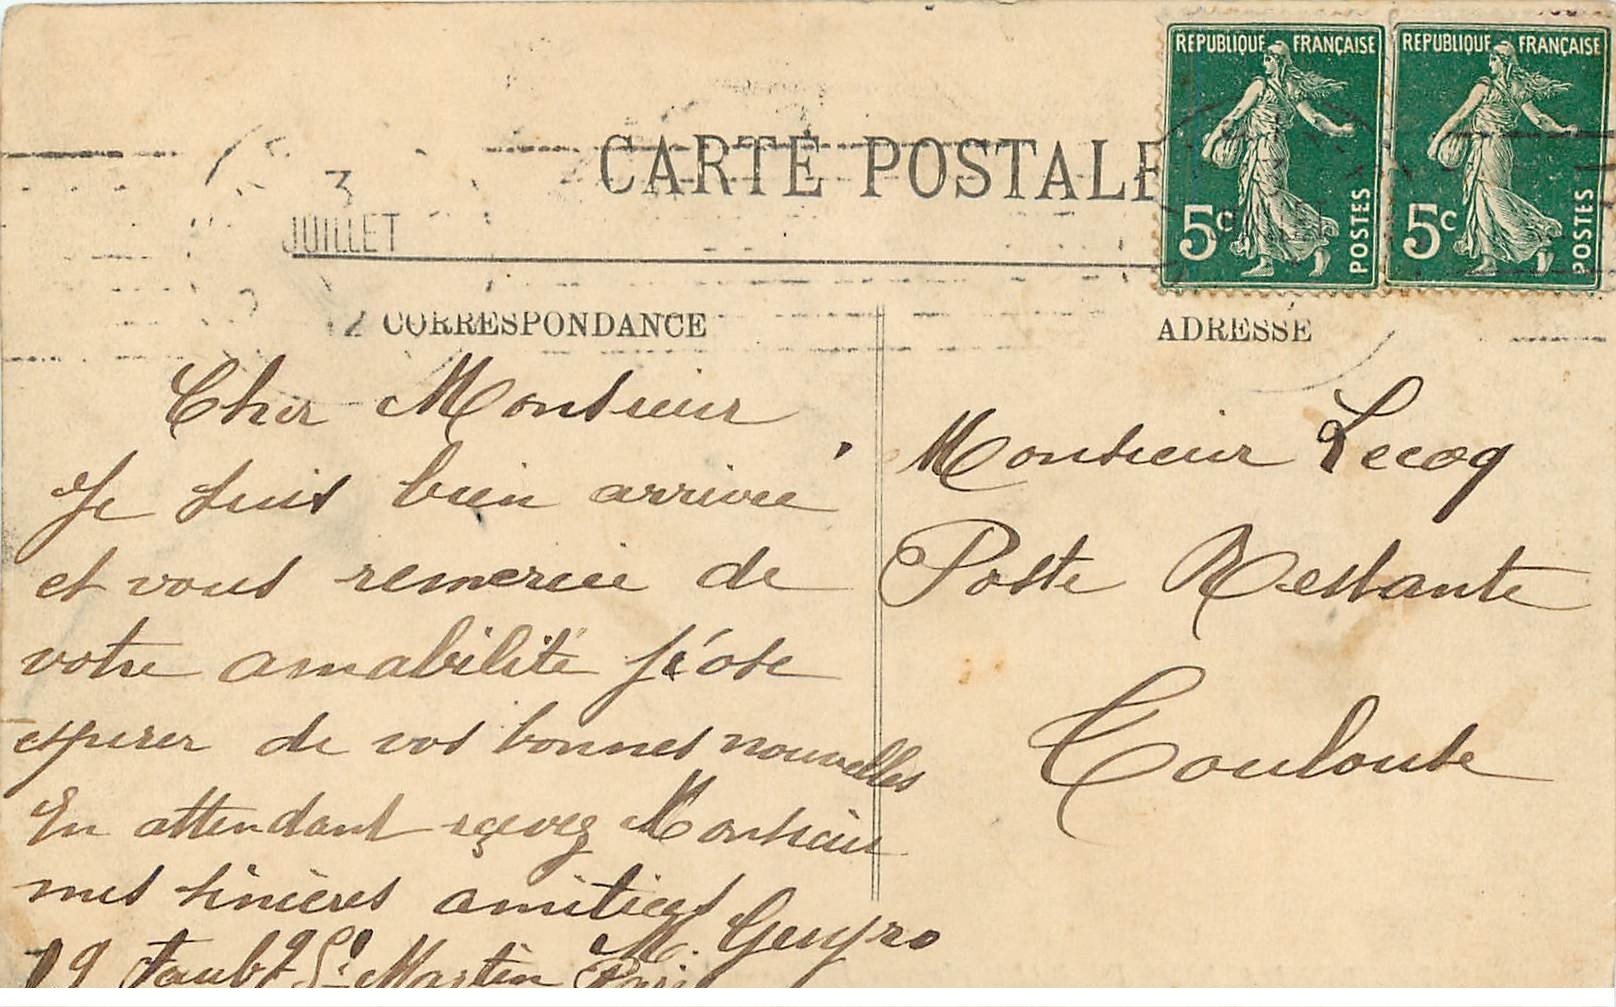 RÉPUBLIQUE FRANÇAISE
5c POSTES
RÉPUBLIQUE FRANÇAISE
5c POSTES
CARTE POSTALE
3
JUILLET
CORRESPONDANCE
ADRESSE
Cher Monsieur
Je suis bien arrivée
et vous remercie de
votre amabilité j'ose
esperer de vos bonnes nouvelles
En attendant reçevez Monsieur
mes sinières amitiées
M.
19 Faubg St Martin Paris
Monsieur Lecoq
Poste Restante
Toulouse